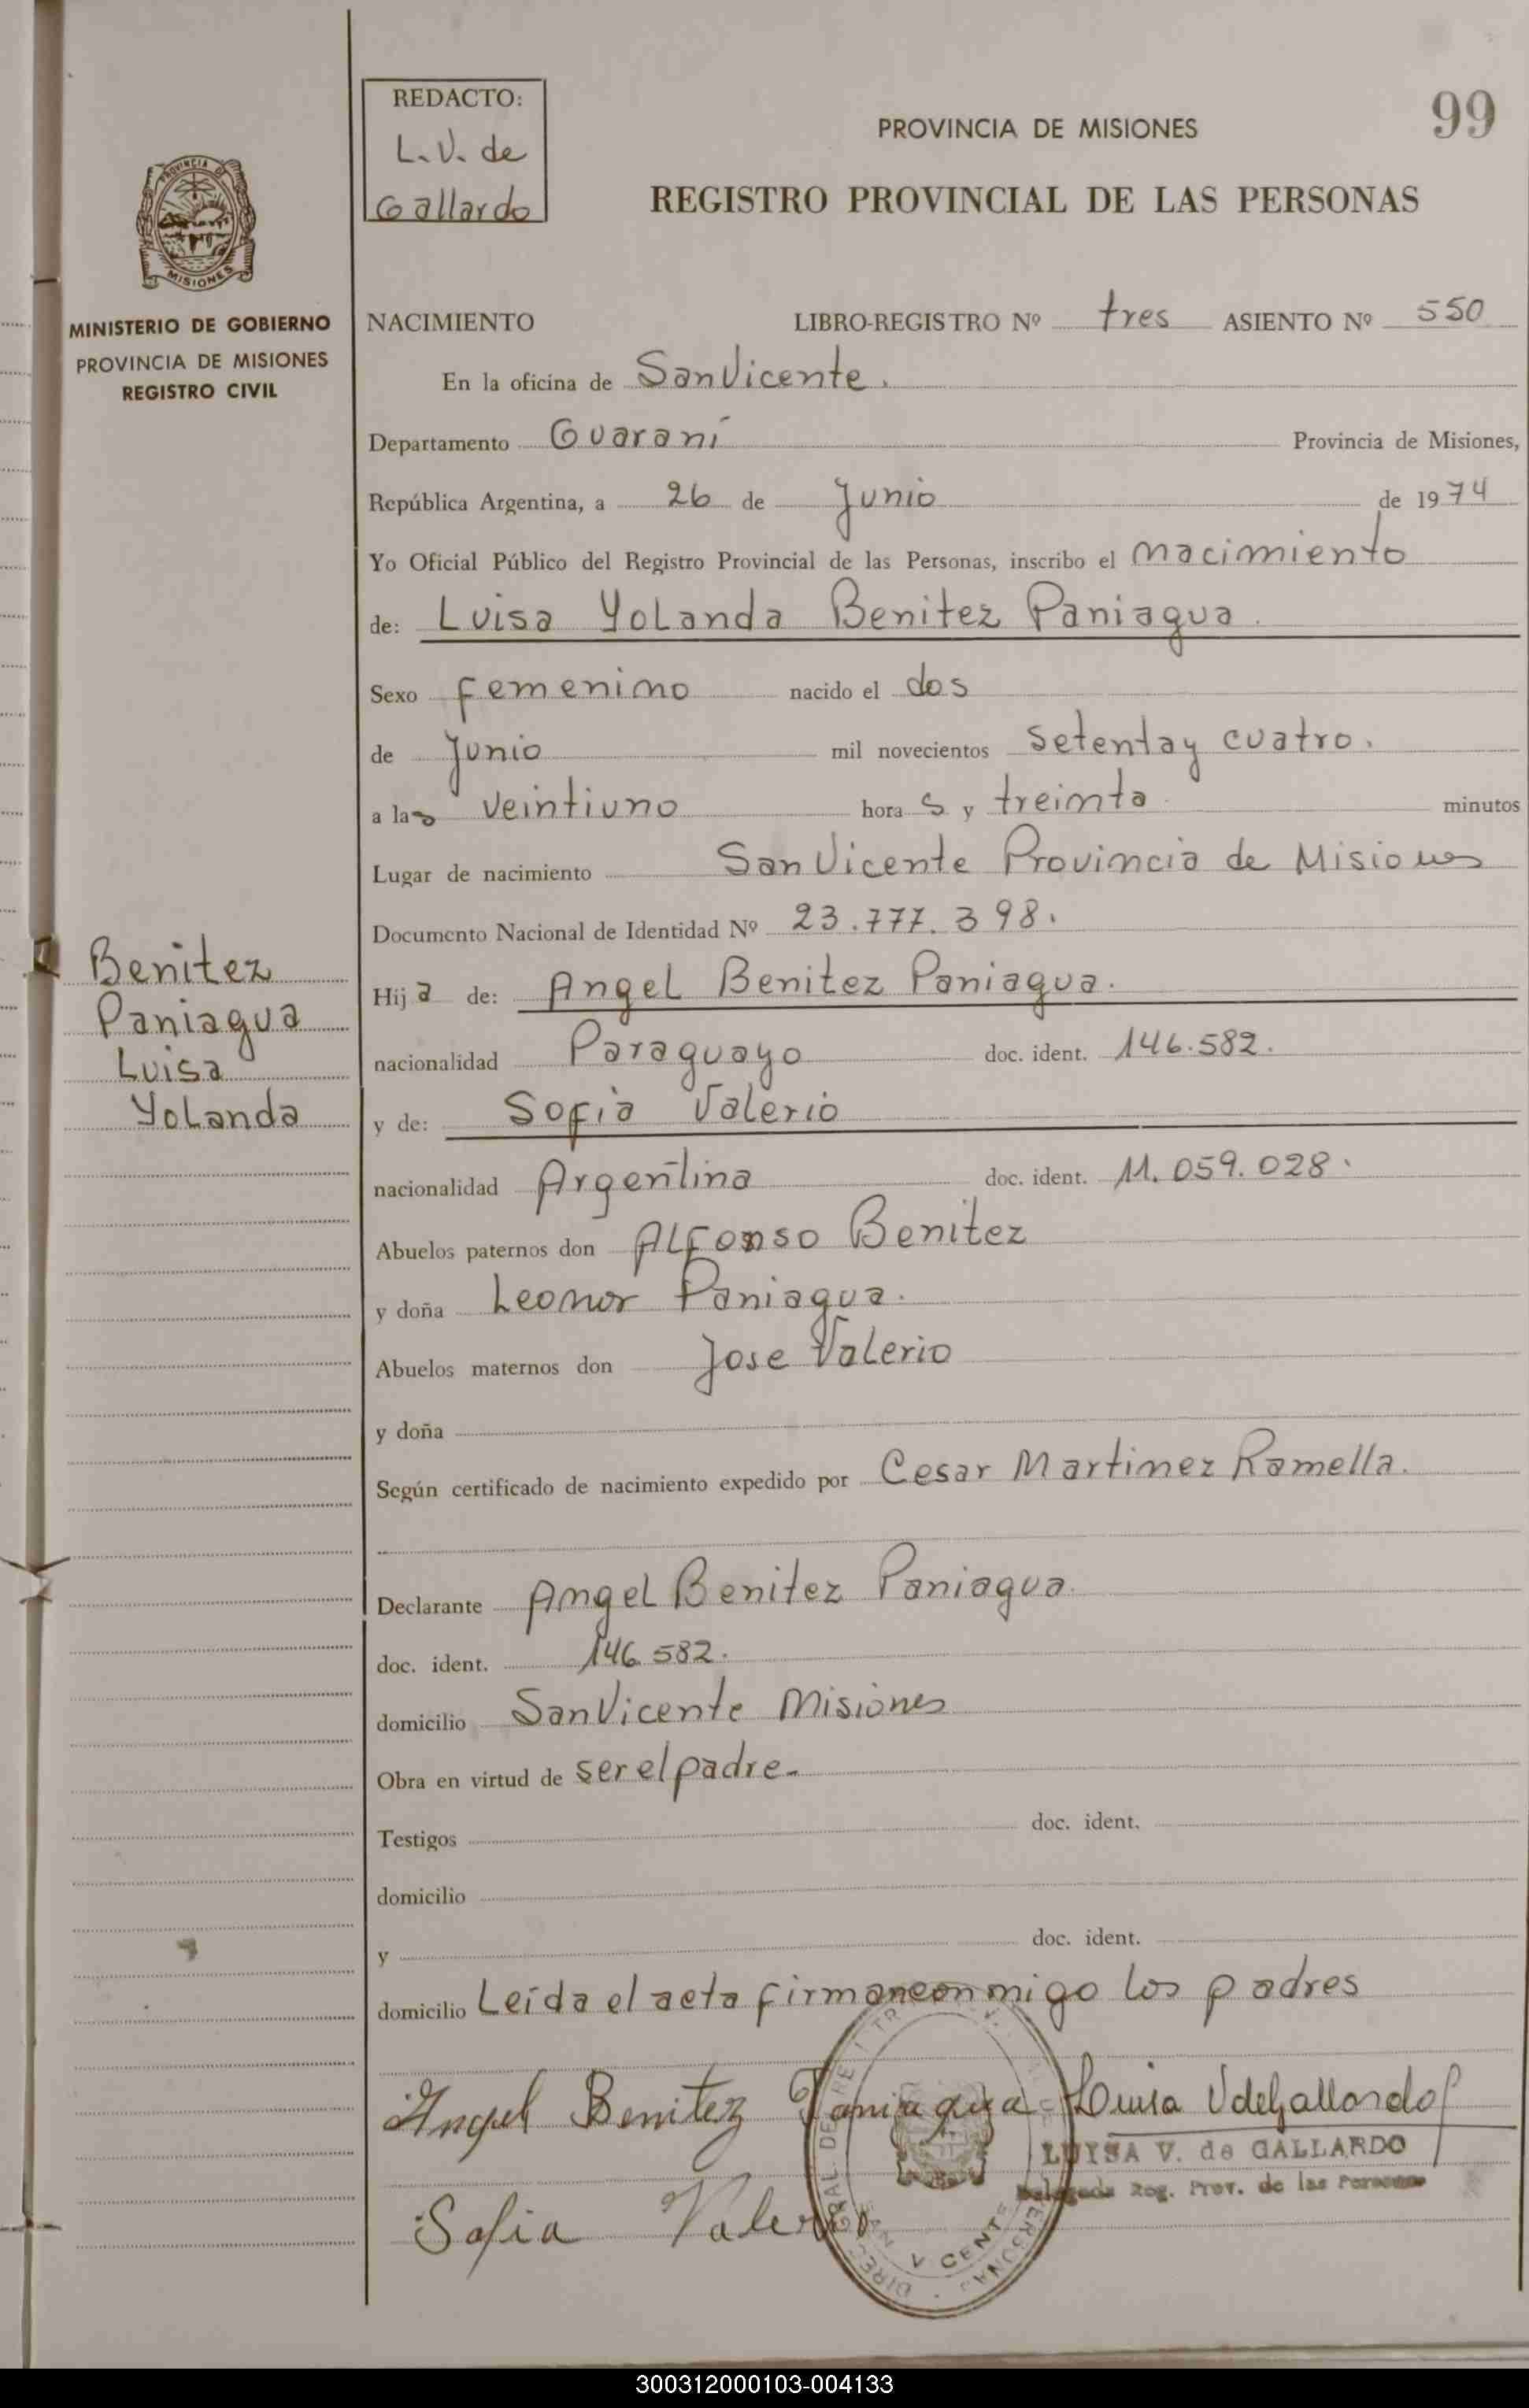 99
REDACTO:
L.V. de
Gallardo
PROVINCIA DE MISIONES
REGISTRO PROVINCIAL DE LAS PERSONAS
PROVINCIA DE
MISIONES
MINISTERIO DE GOBIERNO
PROVINCIA DE MISIONES
REGISTRO CIVIL
NACIMIENTO LIBRO-REGISTRO Nº tres ASIENTO Nº 550
En la oficina de San Vicente.
Departamento Guaraní Provincia de Misiones,
República Argentina, a 26 de Junio de 1974
Yo Oficial Público del Registro Provincial de las Personas, inscribo el nacimiento
de: Luisa Yolanda Benitez Paniagua.
Sexo femenino nacido el dos
de Junio mil novecientos setenta y cuatro.
a las veintiuno horas y treinta minutos
Lugar de nacimiento San Vicente Provincia de Misiones
Documento Nacional de Identidad Nº 23.777.398.
Hija de: Angel Benitez Paniagua.
nacionalidad Paraguayo doc. ident. 146.582.
y de: Sofia Valerio
nacionalidad Argentina doc. ident. 11.059.028.
Abuelos paternos don Alfonso Benitez
y doña Leonor Paniagua.
Abuelos maternos don Jose Valerio
y doña
Según certificado de nacimiento expedido por Cesar Martinez Ramella.
Declarante Angel Benitez Paniagua.
doc. ident. 146.582.
domicilio San Vicente Misiones
Obra en virtud de ser el padre.
Testigos doc. ident.
domicilio
y doc. ident.
domicilio Leída el acta firman conmigo los padres
Benitez
Paniagua
Luisa
Yolanda
Angel Benitez Paniagua Luisa V de Gallardo
LUISA V. de GALLARDO
Delegada Reg. Prov. de las Personas
Sofia Valerio
SAN VICENTE
300312000103-004133